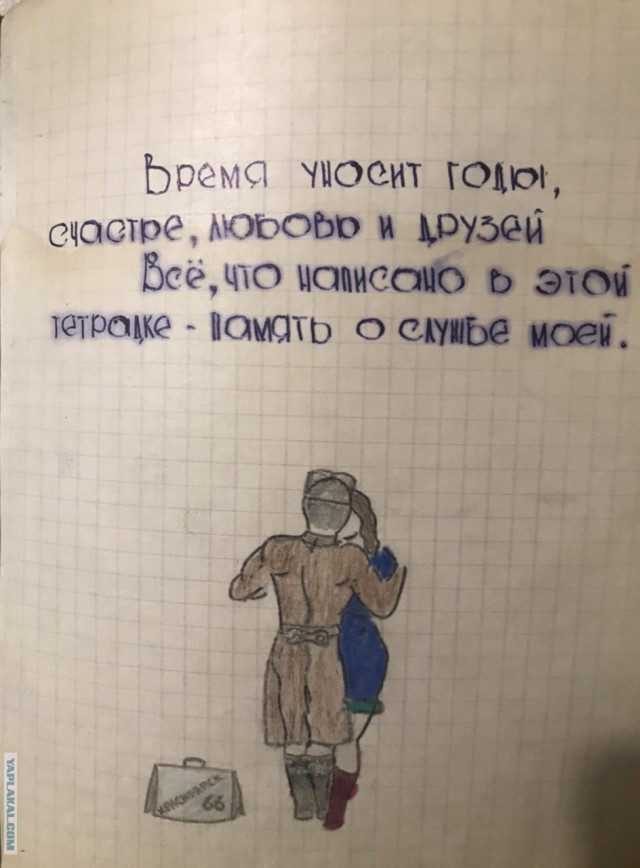 Время уносит годы,
счастре, любовь и друзей
Всё, что написано в этой
тетрадке - память о службе моей.
КРАСНОЯРСК
66
YAPLAKAL.COM